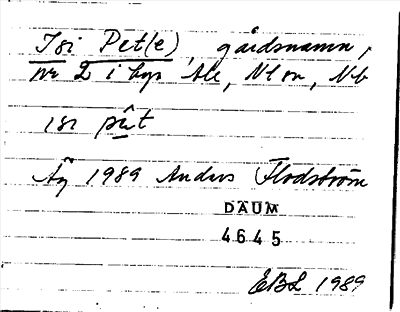 Isi Pet(e), gårdsnamn,
nr 2 i byn Ale, Nl sn, Nb
isi pêt
Äg 1989 Anders Flodström
DAUM
4645
EBL 1989